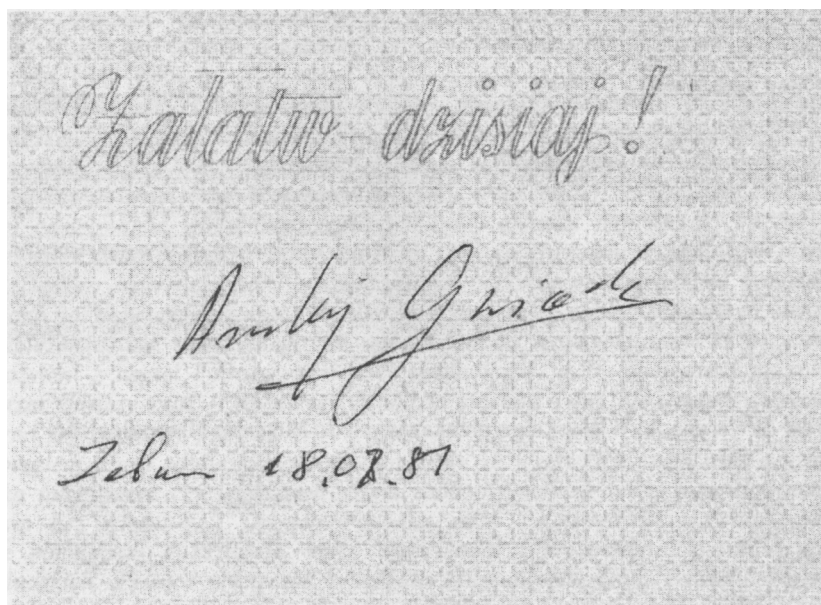 Załatw dzisiaj!
Andrzej Gwiazda
18.08.81